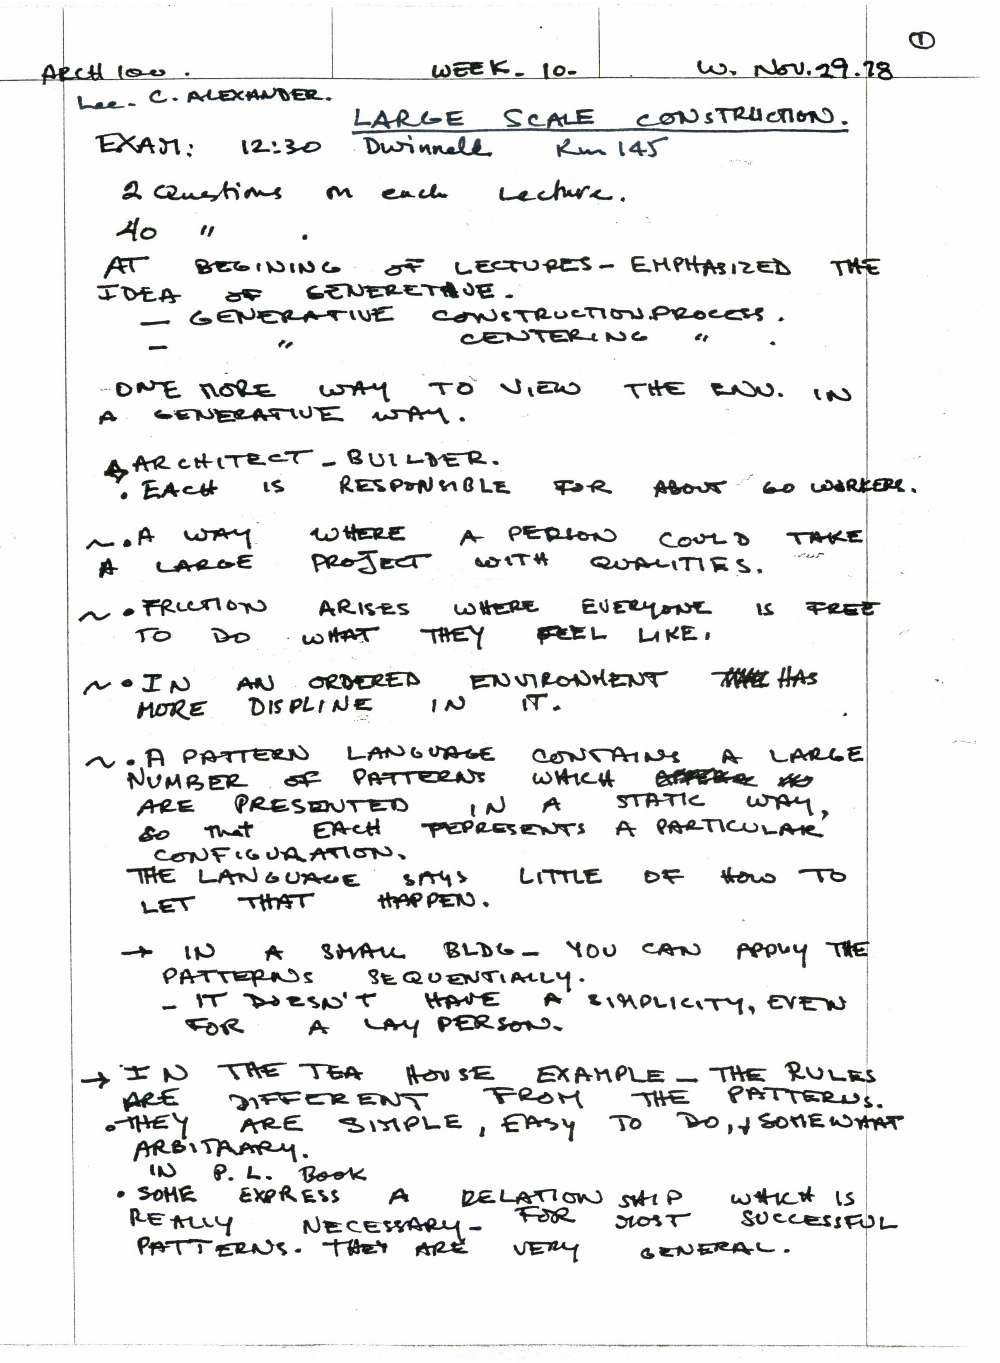 ①
ARCH 100. WEEK- 10- W. NOV. 29. 78
Lec- C. ALEXANDER.
LARGE SCALE CONSTRUCTION.
EXAM: 12:30 Dwinnell Rm 145
2 Questions on each Lecture.
40 " .
AT BEGINING OF LECTURES- EMPHASIZED THE
IDEA OF GENERETIVE.
— GENERATIVE CONSTRUCTION PROCESS.
— " CENTERING " .
-ONE MORE WAY TO VIEW THE ENV. IN
A GENERATIVE WAY.
ARCHITECT - BUILDER.
. EACH IS RESPONSIBLE FOR ABOUT 60 WORKERS.
~ . A WAY WHERE A PERSON COULD TAKE
A LARGE PROJECT WITH QUALITIES.
~ • FRICTION ARISES WHERE EVERYONE IS FREE
TO DO WHAT THEY FEEL LIKE.
~ • IN AN ORDERED ENVIRONMENT HAS
MORE DISPLINE IN IT.
~ . A PATTERN LANGUAGE CONTAINS A LARGE
NUMBER OF PATTERNS WHICH
ARE PRESENTED IN A STATIC WAY,
so that EACH REPRESENTS A PARTICULAR
CONFIGURATION.
THE LANGUAGE SAYS LITTLE OF HOW TO
LET THAT HAPPEN.
→ IN A SMALL BLDG- YOU CAN APPLY THE
PATTERNS SEQUENTIALLY.
- IT DOESN'T HAVE A SIMPLICITY, EVEN
FOR A LAY PERSON.
→ IN THE TEA HOUSE EXAMPLE - THE RULES
ARE DIFFERENT FROM THE PATTERNS.
. THEY ARE SIMPLE, EASY TO DO, + SOMEWHAT
ARBITRARY.
IN P. L. BOOK
• SOME EXPRESS A RELATIONSHIP WHICH IS
REALLY NECESSARY- FOR MOST SUCCESSFUL
PATTERNS. THEY ARE VERY GENERAL.